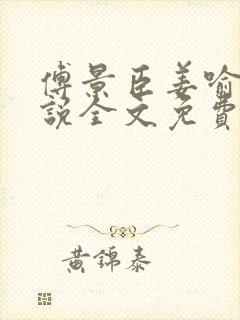 傅景臣姜喻
說全文免費
黃錦泰